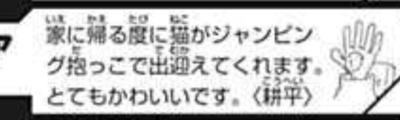 家に帰る度に猫がジャンピン
グ抱っこで出迎えてくれます。
とてもかわいいです。〈耕平〉